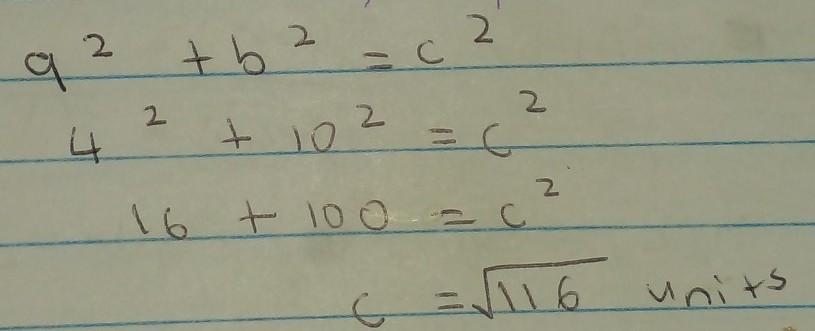 a² + b² = c²
4² + 10² = c²
16 + 100 = c²
c = √116 units